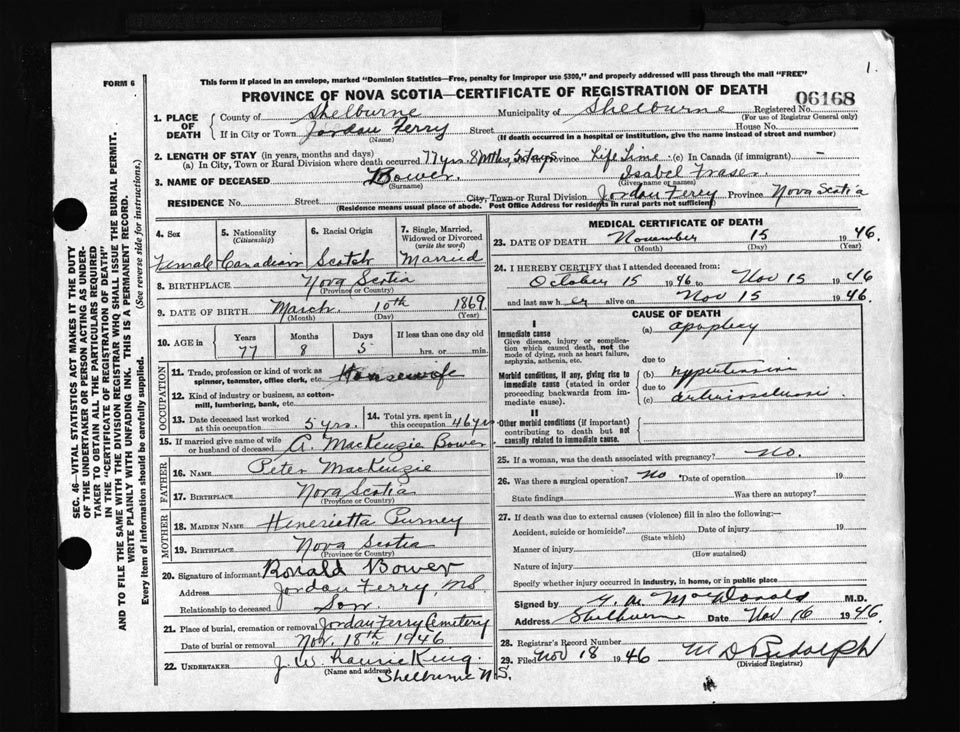 1.
FORM 6
This form if placed in an envelope, marked "Dominion Statistics—Free, penalty for improper use $300," and properly addressed will pass through the mail "FREE"
PROVINCE OF NOVA SCOTIA—CERTIFICATE OF REGISTRATION OF DEATH
06168
1. PLACE OF DEATH County of Shelburne Municipality of Shelburne Registered No.
(For use of Registrar General only)
If in City or Town Jordan Ferry Street House No.
(Name) (If death occurred in a hospital or institution, give the name instead of street and number)
2. LENGTH OF STAY (in years, months and days)
(a) In City, Town or Rural Division where death occurred 77 yrs. 8 Mths, 5 days Province Life Time (c) In Canada (if immigrant) —
3. NAME OF DECEASED Bower. Isabel Fraser
(Surname) (Given name or names)
RESIDENCE No. Street City, Town or Rural Division Jordan Ferry Province Nova Scotia
(Residence means usual place of abode. Post Office Address for residents in rural parts not sufficient)
4. Sex 5. Nationality (Citizenship) 6. Racial Origin 7. Single, Married, Widowed or Divorced (write the word)
Female Canadian Scotch Married
8. BIRTHPLACE Nova Scotia
(Province or Country)
9. DATE OF BIRTH March 10th 1869
(Month) (Day) (Year)
10. AGE in Years Months Days If less than one day old
77 8 5 hrs. or min.
OCCUPATION
11. Trade, profession or kind of work as spinner, teamster, office clerk, etc. Housewife
12. Kind of industry or business, as cotton-mill, lumbering, bank, etc.
13. Date deceased last worked at this occupation 5 yrs. 14. Total yrs. spent in this occupation 46 yrs
15. If married give name of wife or husband of deceased A. MacKenzie Bower
FATHER
16. NAME Peter MacKenzie
17. BIRTHPLACE Nova Scotia
(Province or Country)
MOTHER
18. MAIDEN NAME Henerietta Purney
19. BIRTHPLACE Nova Scotia
(Province or Country)
20. Signature of informant Ronald Bower
Address Jordan Ferry, NS
Relationship to deceased Son.
21. Place of burial, cremation or removal Jordan Ferry Cemetery
Date of burial or removal Nov. 18th, 1946
22. UNDERTAKER J. W. Laurie King.
(Name and address) Shelburne N.S.
MEDICAL CERTIFICATE OF DEATH
23. DATE OF DEATH November 15 1946.
(Month) (Day) (Year)
24. I HEREBY CERTIFY that I attended deceased from:
October 15 1946 to Nov 15 1946
and last saw her alive on Nov 15 1946.
CAUSE OF DEATH
I
Immediate cause (a) apoplexy
Give disease, injury or complication which caused death, not the mode of dying, such as heart failure, asphyxia, asthenia, etc.
due to
Morbid conditions, if any, giving rise to immediate cause (stated in order proceeding backwards from immediate cause).
(b) hypertension
due to
(c) arteriosclerosis
II
Other morbid conditions (if important) contributing to death but not causally related to immediate cause.
25. If a woman, was the death associated with pregnancy? No.
26. Was there a surgical operation? No Date of operation 19
State findings Was there an autopsy?
27. If death was due to external causes (violence) fill in also the following:—
Accident, suicide or homicide? Date of injury 19
(State which)
Manner of injury
(How sustained)
Nature of injury
Specify whether injury occurred in industry, in home, or in public place
Signed by G. W. MacDonald M.D.
Address Shelburne Date Nov 16 1946
28. Registrar's Record Number
29. Filed Nov 18 1946 M D Rudolph
(Division Registrar)
SEC. 46—VITAL STATISTICS ACT MAKES IT THE DUTY
OF THE UNDERTAKER OR PERSON ACTING AS UNDERTAKER TO OBTAIN ALL THE PARTICULARS REQUIRED
IN THE "CERTIFICATE OF REGISTRATION OF DEATH"
AND TO FILE THE SAME WITH THE DIVISION REGISTRAR WHO SHALL ISSUE THE BURIAL PERMIT.
WRITE PLAINLY WITH UNFADING INK. THIS IS A PERMANENT RECORD.
Every item of information should be carefully supplied. (See reverse side for instructions.)